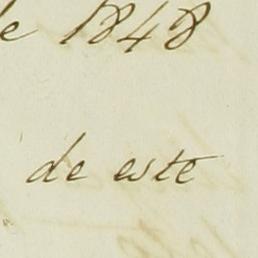 e 1848
de este